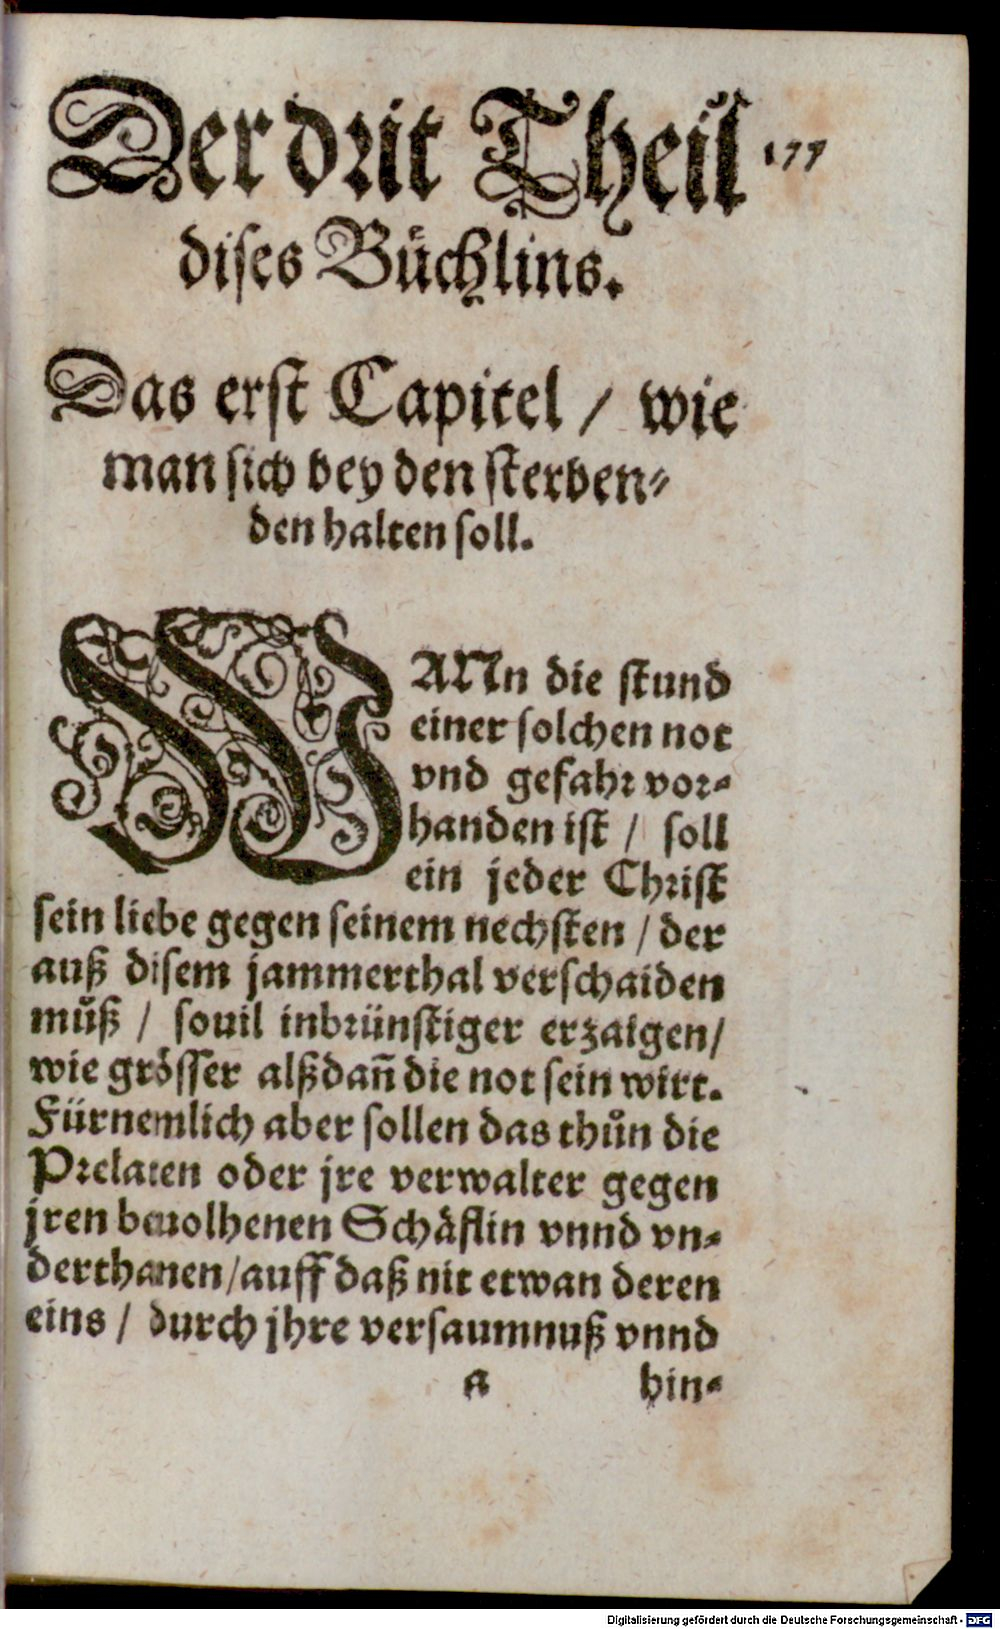 Der drit Theil 177
dises Büchlins.
Das erst Capitel / wie
man sich bey den sterben-
den halten soll.
WANn die stund
einer solchen not
vnd gefahr vor-
handen ist / soll
ein jeder Christ
sein liebe gegen seinem nechsten / der
auß disem jammerthal verschaiden
můß / souil inbrünstiger erzaigen /
wie grösser alßdañ die not sein wirt.
Fürnemlich aber sollen das thůn die
Prelaten oder jre verwalter gegen
jren beuolhenen Schäflin vnnd vn-
derthanen / auff daß nit etwan deren
eins / durch jhre versaumnuß vnnd
a hin-
Digitalisierung gefördert durch die Deutsche Forschungsgemeinschaft - DFG